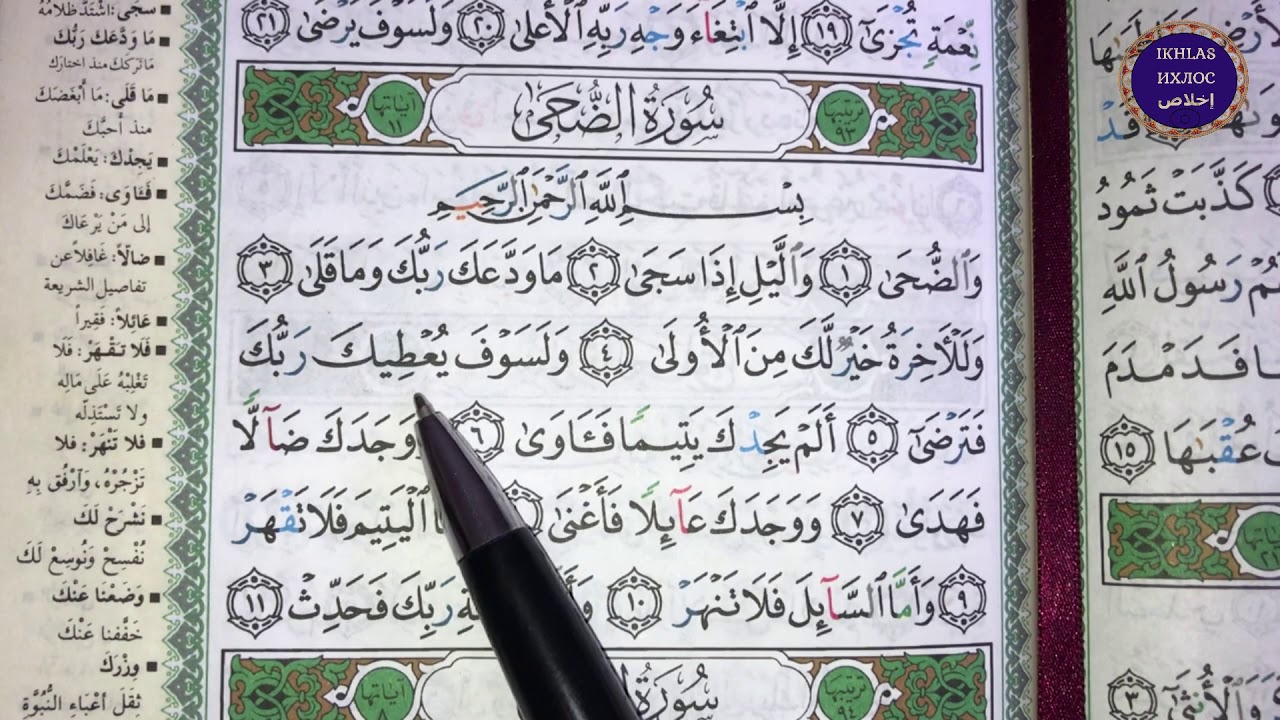 نِّعْمَةٍ تُجْزَىٰٓ ١٩ إِلَّا ٱبْتِغَآءَ وَجْهِ رَبِّهِ ٱلْأَعْلَىٰ ٢٠ وَلَسَوْفَ يَرْضَىٰ ٢١
ترتيبها ٩٣ سُورَةُ الضُّحَىٰ آياتها ١١
بِسْمِ ٱللَّهِ ٱلرَّحْمَٰنِ ٱلرَّحِيمِ
وَٱلضُّحَىٰ ١ وَٱلَّيْلِ إِذَا سَجَىٰ ٢ مَا وَدَّعَكَ رَبُّكَ وَمَا قَلَىٰ ٣
وَلَلْأَخِرَةُ خَيْرٌ لَّكَ مِنَ ٱلْأُولَىٰ ٤ وَلَسَوْفَ يُعْطِيكَ رَبُّكَ
فَتَرْضَىٰٓ ٥ أَلَمْ يَجِدْكَ يَتِيمًا فَـَٔاوَىٰ ٦ وَوَجَدَكَ ضَآلًّا
فَهَدَىٰ ٧ وَوَجَدَكَ عَآئِلًا فَأَغْنَىٰ ٱلْيَتِيمَ فَلَا تَقْهَرْ
٩ وَأَمَّا ٱلسَّآئِلَ فَلَا تَنْهَرْ ١٠ رَبِّكَ فَحَدِّثْ ١١
ترتيبها ٩٤ سُورَةُ آياتها ٨
سجى: اشْتَدَّ ظَلَامُهُ
مَا وَدَّعَكَ رَبُّكَ
مَا تَرَكَكَ منذ اختارك
مَا قَلَى: مَا أَبْغَضَكَ
منذ أَحَبَّكَ
يَجِدْكَ: يَعْلَمْكَ
فَـَٔاوَى: فَضَمَّكَ
إلى مَنْ يَرْعَاكَ
ضالًّا: غَافِلًا عن
تفاصيل الشريعة
عَائِلًا: فقيراً
فَلَا تَقْهَرْ: فَلَا
تَغْلِبْهُ عَلَى مَالِه
ولا تَسْتَذِلَّه
فلا تَنْهَرْ: فلا
تَزْجُرْهُ، وَٱرْفُق بِهِ
نَشْرَحْ لَكَ
نُفْسِحْ وَنُوسِعْ لَكَ
وَضَعْنَا عَنْكَ
خَفَّفنا عَنْكَ
وِزْرَكَ
ثِقَلَ أَعْبَاءِ النُّبُوَّةِ
IKHLAS
ИХЛОС
إخلاص
كَذَّبَتْ ثَمُودُ
رَسُولُ ٱللَّهِ
فَدَمْدَمَ
عُقْبَٰهَا ١٥
وَٱلْأُنثَىٰٓ ٣